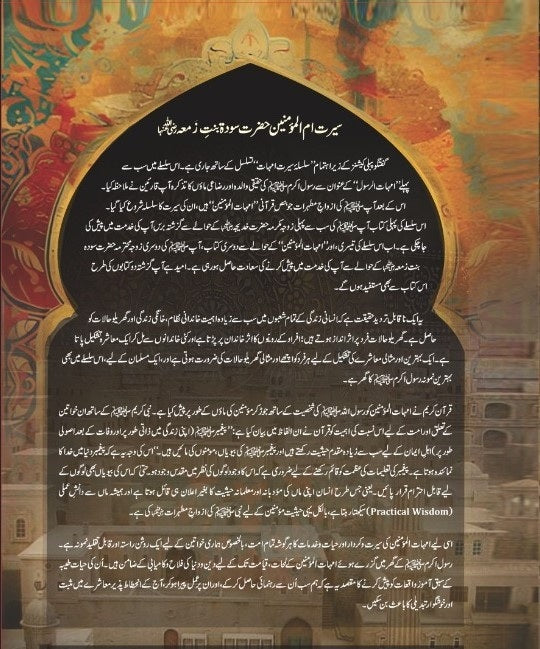 سیرت ام المؤمنین حضرت سودۃ بنتِ زمعہ رضی اللہ عنہا
گفتگو پبلی کیشنز کے زیر اہتمام ”سلسلۂ سیرت امہات“ تسلسل کے ساتھ جاری ہے۔ اس سلسلے میں سب سے
پہلے ”امہات الرسول“ کے عنوان سے رسول اکرم ﷺ کی حقیقی والدہ اور رضاعی ماؤں کا تذکرہ، آپ قارئین نے ملاحظہ کیا۔
اس کے بعد آپ ﷺ کی ازواجِ مطہرات جو بنص قرآنی ”امہات المؤمنین“ ہیں، ان کی سیرت کا سلسلہ شروع کیا گیا۔
اس سلسلے کی پہلی کتاب آپ ﷺ کی سب سے پہلی زوجہ مکرمہ حضرت خدیجہ رضی اللہ عنہا کے حوالے سے گزشتہ برس آپ کی خدمت میں پیش کی
جا چکی ہے۔ اب اس سلسلے کی تیسری، اور ”امہات المؤمنین“ کے حوالے سے دوسری کتاب، آپ ﷺ کی دوسری زوجہ محترمہ حضرت سودہ
بنت زمعہ رضی اللہ عنہا کے حوالے سے آپ کی خدمت میں پیش کرنے کی سعادت حاصل ہو رہی ہے۔ امید ہے آپ گزشتہ دو کتابوں کی طرح
اس کتاب سے بھی مستفید ہوں گے۔
یہ ایک ناقابل تردید حقیقت ہے کہ انسانی زندگی کے تمام شعبوں میں سب سے زیادہ اہمیت خاندانی نظام، خانگی زندگی اور گھریلو حالات کو
حاصل ہے۔ گھریلو حالات فرد پر اثر انداز ہوتے ہیں؛ افراد کے رویوں کا اثر خاندان پر پڑتا ہے اور کئی خاندانوں سے مل کر ایک معاشرہ تشکیل پاتا
ہے۔ ایک بہترین اور مثالی معاشرے کی تشکیل کے لیے ہر فرد کو اچھے اور مثالی گھریلو حالات کی ضرورت ہوتی ہے اور، ایک مسلمان کے لیے، اس سلسلے میں بھی
بہترین نمونہ رسول اکرم ﷺ کا گھر ہے۔
قرآن کریم نے امہات المؤمنین کو رسول اللہ ﷺ کی شخصیت کے ساتھ جوڑ کر مؤمنین کی ماؤں کے طور پر پیش کیا ہے۔ نبی کریم ﷺ کے ساتھ ان خواتین
کے تعلق اور امت کے لیے اس نسبت کی اہمیت کو قرآن نے ان الفاظ میں بیان کیا ہے: ”پیغمبر ﷺ (اپنی زندگی میں ذاتی طور پر اور وفات کے بعد اصولی
طور پر) اہل ایمان کے لیے سب سے زیادہ مقدم حیثیت رکھتے ہیں اور پیغمبر ﷺ کی بیویاں، مومنوں کی مائیں ہیں۔“ اس کی وجہ یہ ہے کہ پیغمبر دنیا میں خدا کا
نمائندہ ہوتا ہے۔ پیغمبر کی تعلیمات کی عظمت کو قائم رکھنے کے لیے ضروری ہے کہ اس کا وجود لوگوں کی نظر میں مقدس وجود ہو۔ حتیٰ کہ اس کی بیویاں بھی لوگوں کے
لیے قابل احترام قرار پائیں۔ یعنی جس طرح انسان اپنی ماں کی مؤدبانہ اور معلمانہ حیثیت کا بغیر اعلان ہی قائل ہوتا ہے اور ہمیشہ ماں سے دانش عملی
(Practical Wisdom) سیکھتا رہتا ہے، بالکل یہی حیثیت مؤمنین کے لیے نبی ﷺ کی ازواجِ مطہرات رضی اللہ عنہن کی ہے۔
اسی لیے امہات المؤمنین کی سیرت و کردار اور حیات و خدمات کا ہر گوشہ تمام امت، بالخصوص ہماری خواتین کے لیے ایک روشن راستہ اور قابل تقلید نمونہ ہے۔
رسول اکرم ﷺ کے گھر میں گزرے ہوئے امہات المؤمنین کے لمحات، قیامت تک کے لیے دین و دنیا کی فلاح و کامیابی کے ضامن ہیں۔ اُن کی حیاتِ طیبہ
کے سبق آموز واقعات کو پیش کرنے کا مقصد یہ ہے کہ ہم سب اُن سے رہنمائی حاصل کر کے، اور ان پر عمل پیرا ہو کر، آج کے انحطاط پذیر معاشرے میں مثبت
اور خوشگوار تبدیلی کا باعث بن سکیں۔